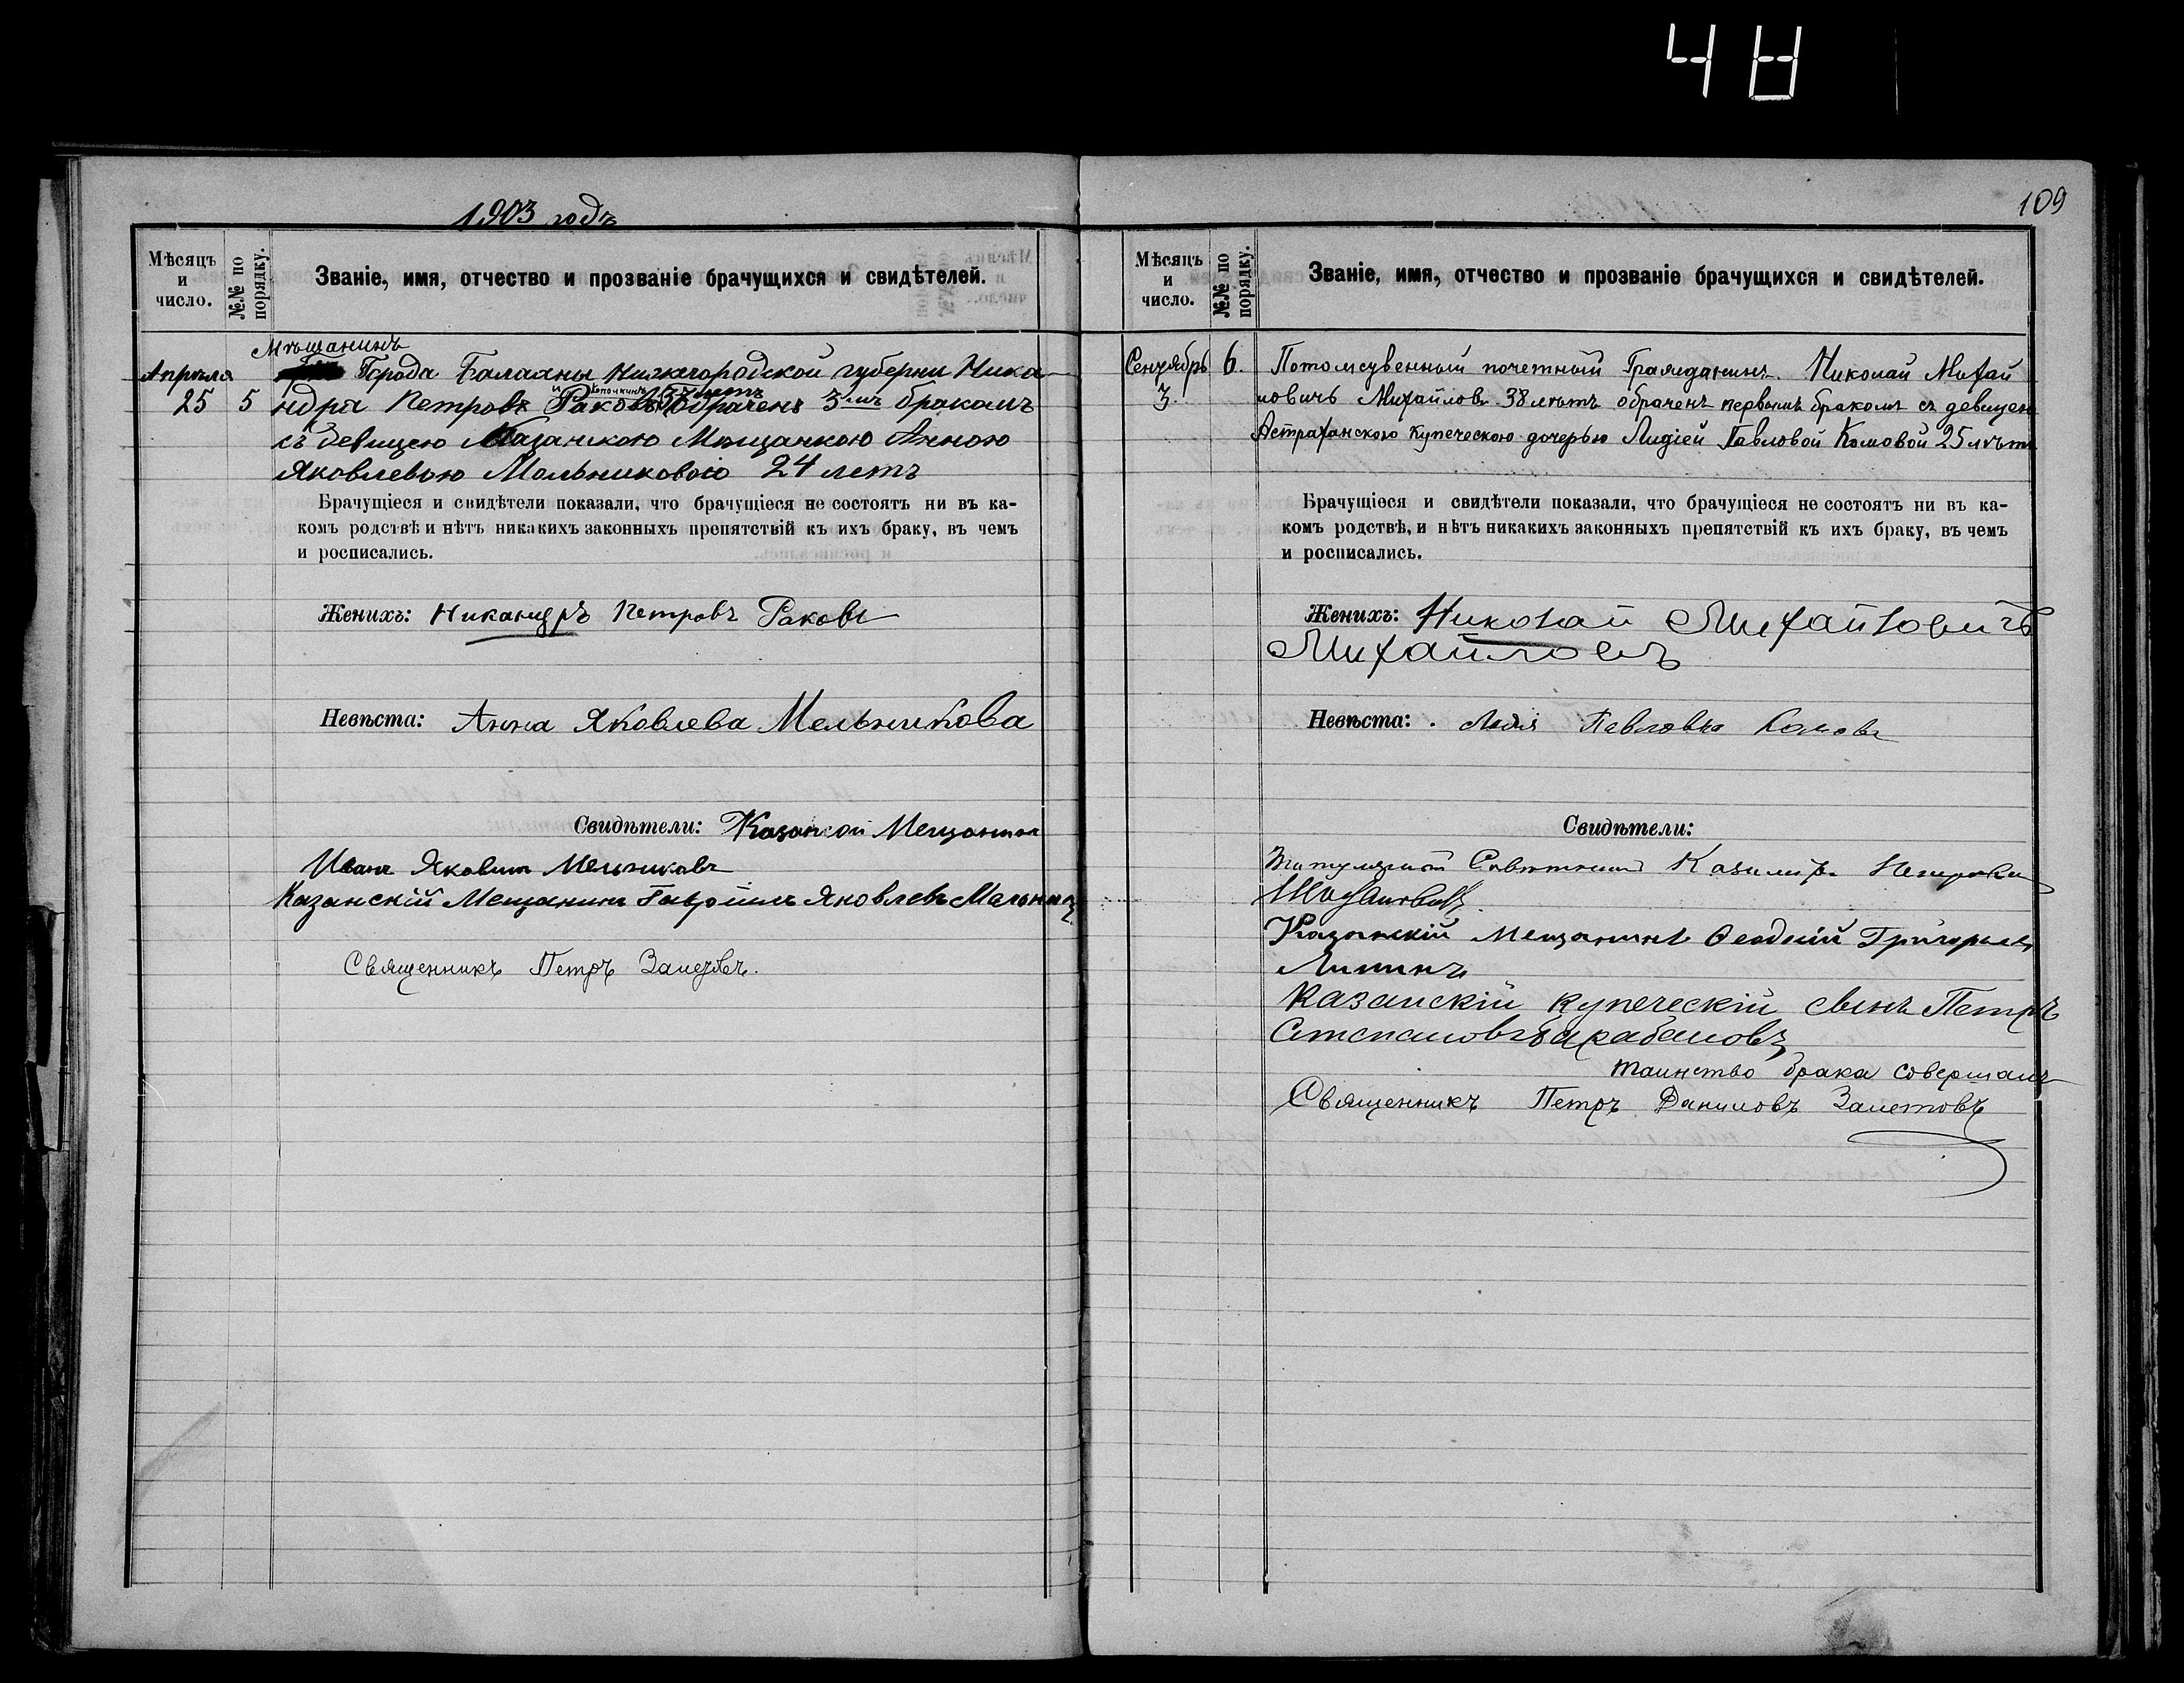 48
1903 годъ
Мѣсяцъ и число.
№№ по порядку.
Званіе, имя, отчество и прозваніе брачущихся и свидѣтелей.
Мѣщанинъ
Апрѣля Города Балахны Нижегородской губерни Ника
25 5 ндра Петровъ Раковъ и Копочкинъ 33 летъ обрачень 3-мъ бракомъ
съ девицею Казанскою Мѣщанкою Анною
Яковлевою Мельниковою 24 летъ
Брачущіеся и свидѣтели показали, что брачущіеся не состоятъ ни въ ка-
комъ родствѣ и нѣтъ никакихъ законныхъ препятствій къ ихъ браку, въ чемъ
и росписались.
Женихъ: Никандръ Петровъ Раковъ
Невѣста: Анна Яковлева Мельникова
Свидѣтели: Казанской Мещанин
Иванъ Яковлев Мельниковъ
Казанскій Мещанинъ Гавріилъ Яковлевъ Мельник
Священникъ Петръ Залетовъ.
109
Мѣсяцъ и число.
№№ по порядку.
Званіе, имя, отчество и прозваніе брачущихся и свидѣтелей.
Сентябрь 6. Потомственный почетный Гражданинъ. Николай Михай
3. ловичъ Михайловъ 38 лѣтъ обраченъ первымъ бракомъ съ девицею
Астраханскою Купеческою дочерью Лидіей Павловой Комовой 25 лѣтъ
Брачущіеся и свидѣтели показали, что брачущіеся не состоятъ ни въ ка-
комъ родствѣ, и нѣтъ никакихъ законныхъ препятствій къ ихъ браку, въ чемъ
и росписались.
Женихъ: Николай Михайловичъ
Михайловъ
Невѣста: Лидія Павловна Комова
Свидѣтели:
Титулярный Совѣтникъ Казимір
Казанскій Мещанинъ Григорьев
Липинъ
Казанскій купеческій сынъ Петръ
Степановъ Барабановъ
таинство брака совершалъ
Священникъ Петръ Даниловъ Залетовъ